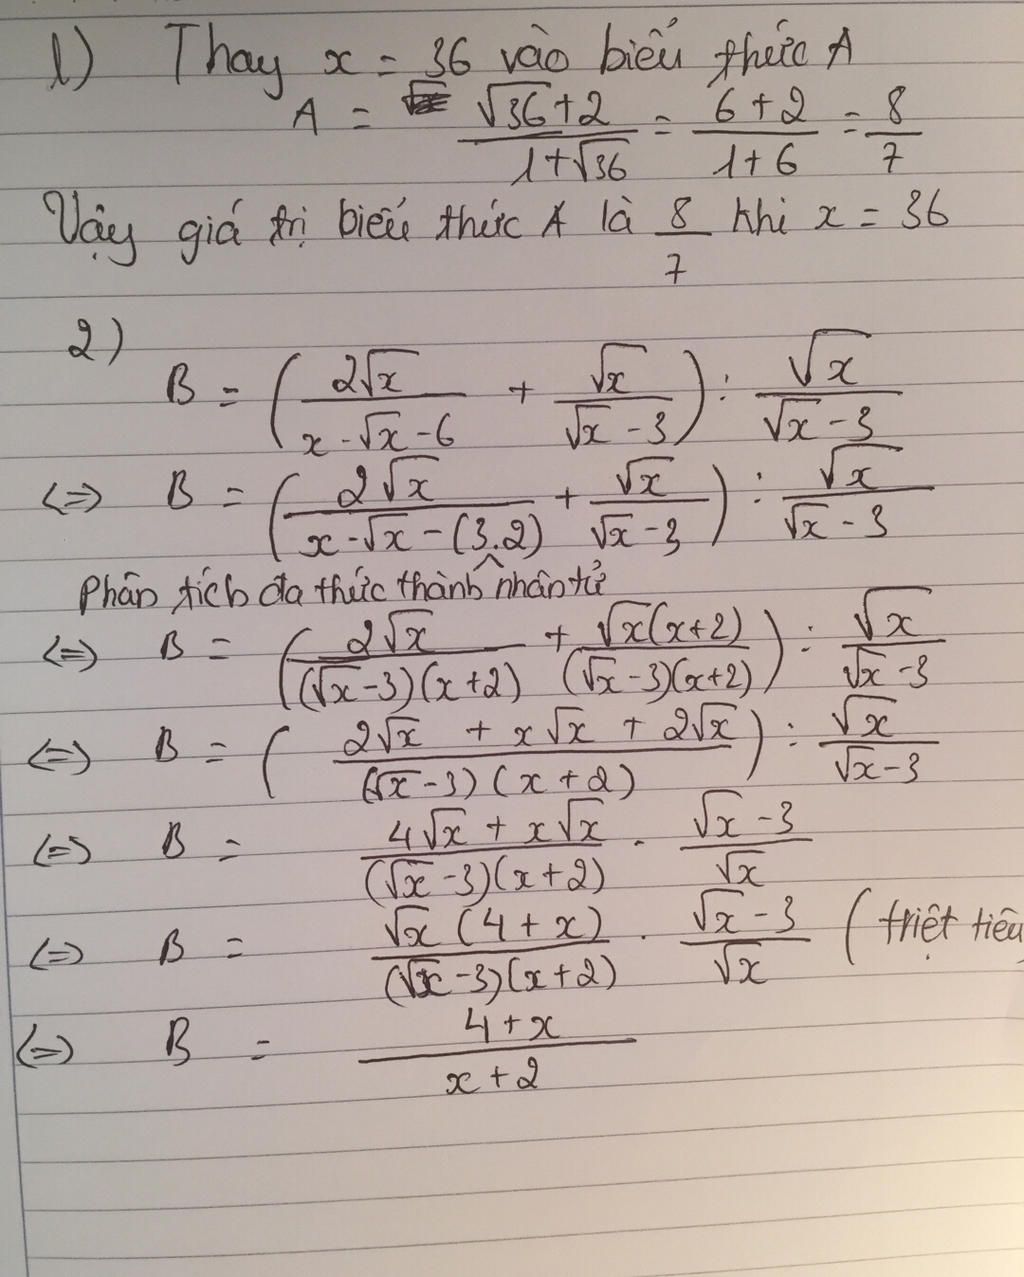 1) Thay x = 36 vào biểu thức A
A = (√36+2)/(1+√36) = (6+2)/(1+6) = 8/7
Vậy giá trị biểu thức A là 8/7 khi x = 36
2)
B = (2√x/(x-√x-6) + √x/(√x-3)) : √x/(√x-3)
<=> B = (2√x/(x-√x-(3.2)) + √x/(√x-3)) : √x/(√x-3)
Phân tích đa thức thành nhân tử
<=> B = (2√x/((√x-3)(x+2)) + √x(x+2)/((√x-3)(x+2))) : √x/(√x-3)
<=> B = ((2√x + x√x + 2√x)/((√x-3)(x+2))) : √x/(√x-3)
<=> B = (4√x + x√x)/((√x-3)(x+2)) . (√x-3)/√x
<=> B = √x(4+x)/((√x-3)(x+2)) . (√x-3)/√x (triệt tiêu
<=> B = (4+x)/(x+2)